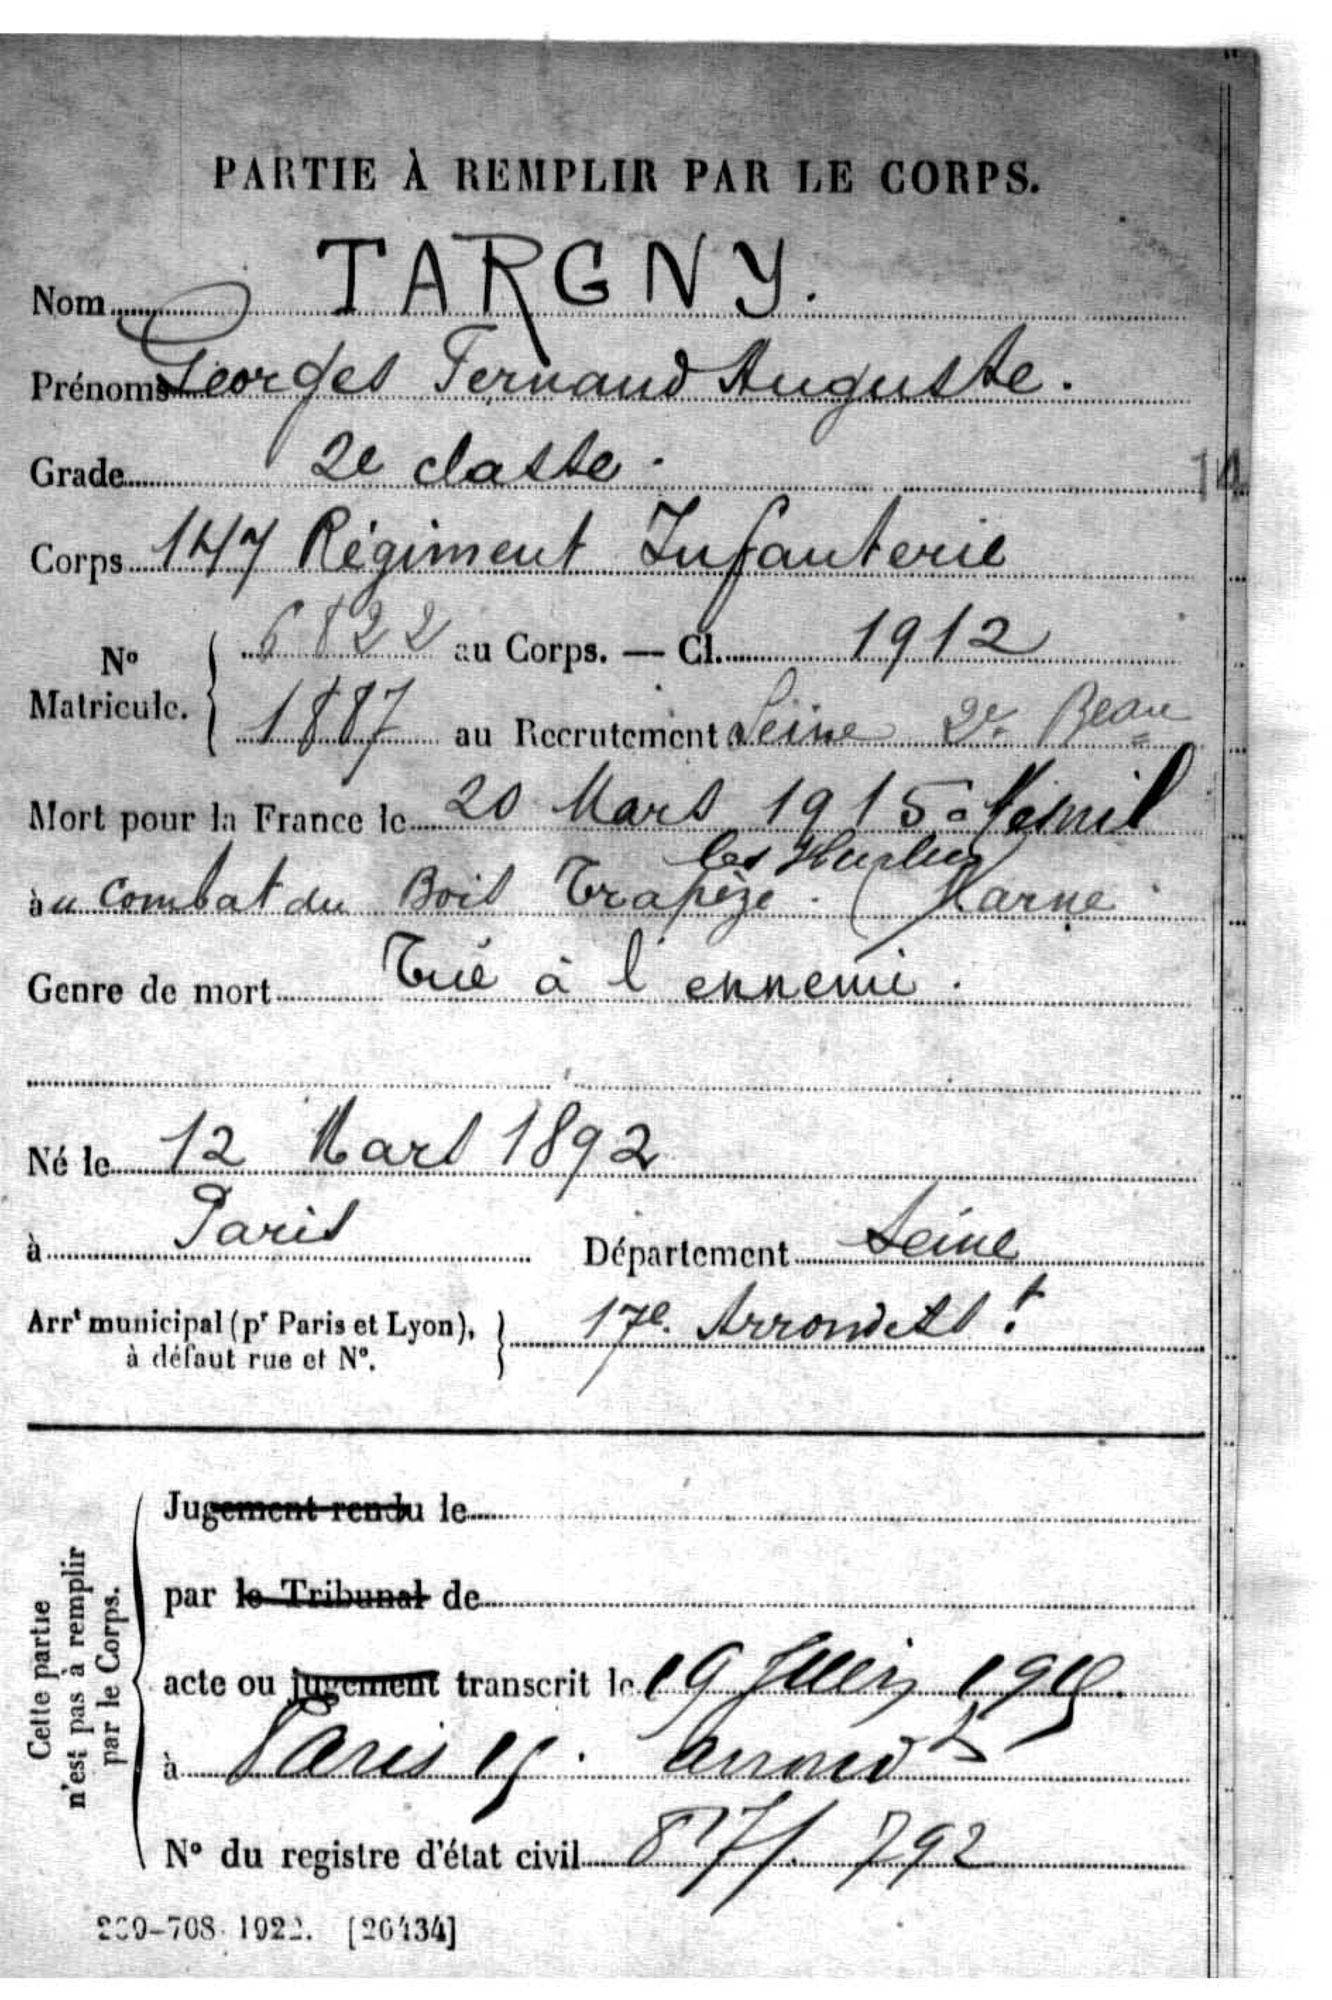 PARTIE À REMPLIR PAR LE CORPS.
Nom TARGNY.
Prénoms Georges Fernand Auguste.
Grade 2e classe.
14
Corps 147 Régiment Infanterie
N° Matricule. 6822 au Corps. — Cl. 1912
1887 au Recrutement Seine 2e Beau
Mort pour la France le 20 Mars 1915 à Mesnil
les Hurlus
au Combat du Bois Trapèze. (Marne
Genre de mort Tué à l'ennemi.
Né le 12 Mars 1892
à Paris Département Seine
Arrt municipal (pr Paris et Lyon), 17e. Arrondisst.
à défaut rue et N°.
Cette partie
n'est pas à remplir
par le Corps.
Jugement rendu le
par le Tribunal de
acte ou jugement transcrit le 19 Juin 1915
à Paris arrondt
N° du registre d'état civil 792
[26434]